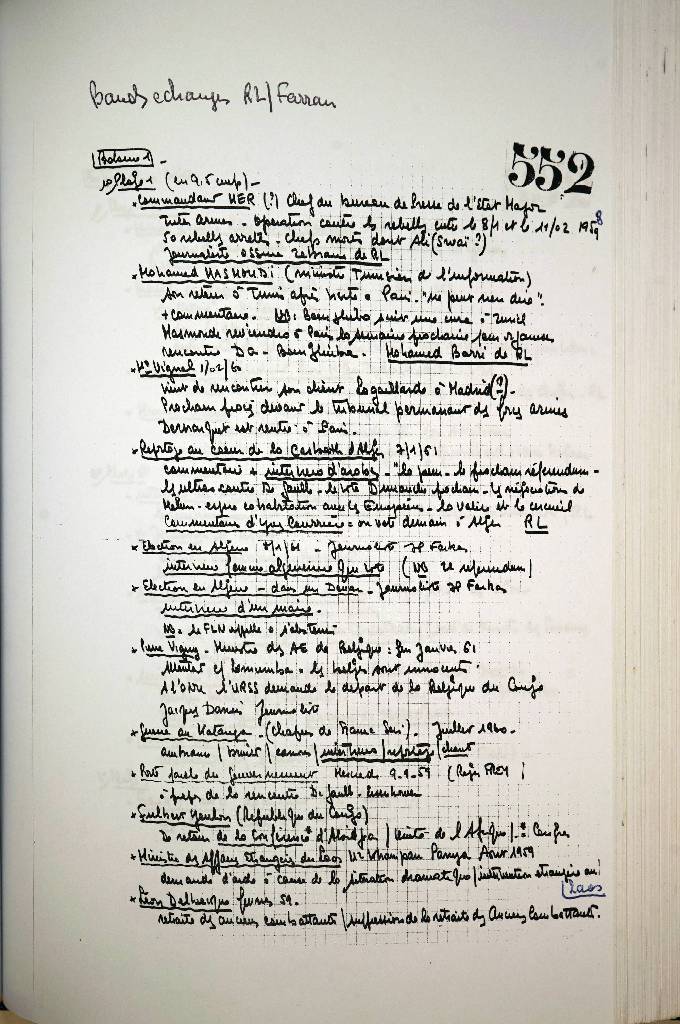 Bands echanges RL/Farran
552
Bobine 1 -
1° Plage 1 (en 9.5 cm/s) -
* Commandant MER (?) Chef du bureau de Presse de l'état Major
Inter Armes - opération contre les rebelles entre le 8/1 et le 11/02 1959 8
50 rebelles arretés - chefs morts dont Ali (Swaï ?)
Journaliste de RL
* Mohamed MASMOUDI (ministre Tunisien de l'information)
son retour à Tunis après visite à Paris. "ne peut rien dire".
+ commentaire. NB: Bourghiba suit une cure à Zurich
Masmoudi reviendra à Paris la semaine prochaine pour organiser
rencontre DG - Bourghiba. Mohamed Barri de RL
* Me Vignal 1/02/60
vient de rencontrer son client Lagaillarde à Madrid (?) -
Prochain procès devant le tribunal permanent des forces armées
Demarquet est rentré à Paris.
* Reportage au coeur de la Casbah d'Alger 7/1/61
commentaire + interviews d'arabes - "la peur - le prochain référendum -
les ultras contre De Gaulle - le vote Dimanche prochain - les négociations de
Melun - espère cohabitation avec les Européens - la valise et le cercueil
Commentaire d'Yves Courrière = on vote demain à Alger RL
* Election en Algérie 8/1/61 - Journaliste JP Farkas
interview femme algérienne qui vote (NB 2e referendum)
* Election en Algérie - dans un Douar - Journaliste JP Farkas
interview d'un maire.
NB: le FLN appelle à s'abstenir
* Pierre Vigny - Ministre des AE de Belgique: Janvier 61
Lumumba - les belges sont innocents
A l'ONU l'URSS demande le départ de la Belgique du Congo
Jacques Journaliste
* Guerre au Katanga - (Chapus de France Soir) - Juillet 1960 -
ambiance / bruits / canons / interviews / reportage / chant
* Porte parole du Gouvernement Mercredi 9-9-59 (Roger FREY)
à propos de la rencontre De Gaulle - Eisenhower
* Fulbert Youlou (République du Congo)
De retour de la Conférence d'Abidjan / unité de l'Afrique / Congo
* Ministre des Affaires Etrangères du Laos Mr Khampan Panya Aout 1959
demande d'aide à cause de la situation dramatique / intervention étrangère au
Laos
* Léon Delbecque 59.
retraite des anciens combattants / suppression de la retraite des Anciens Combattants.